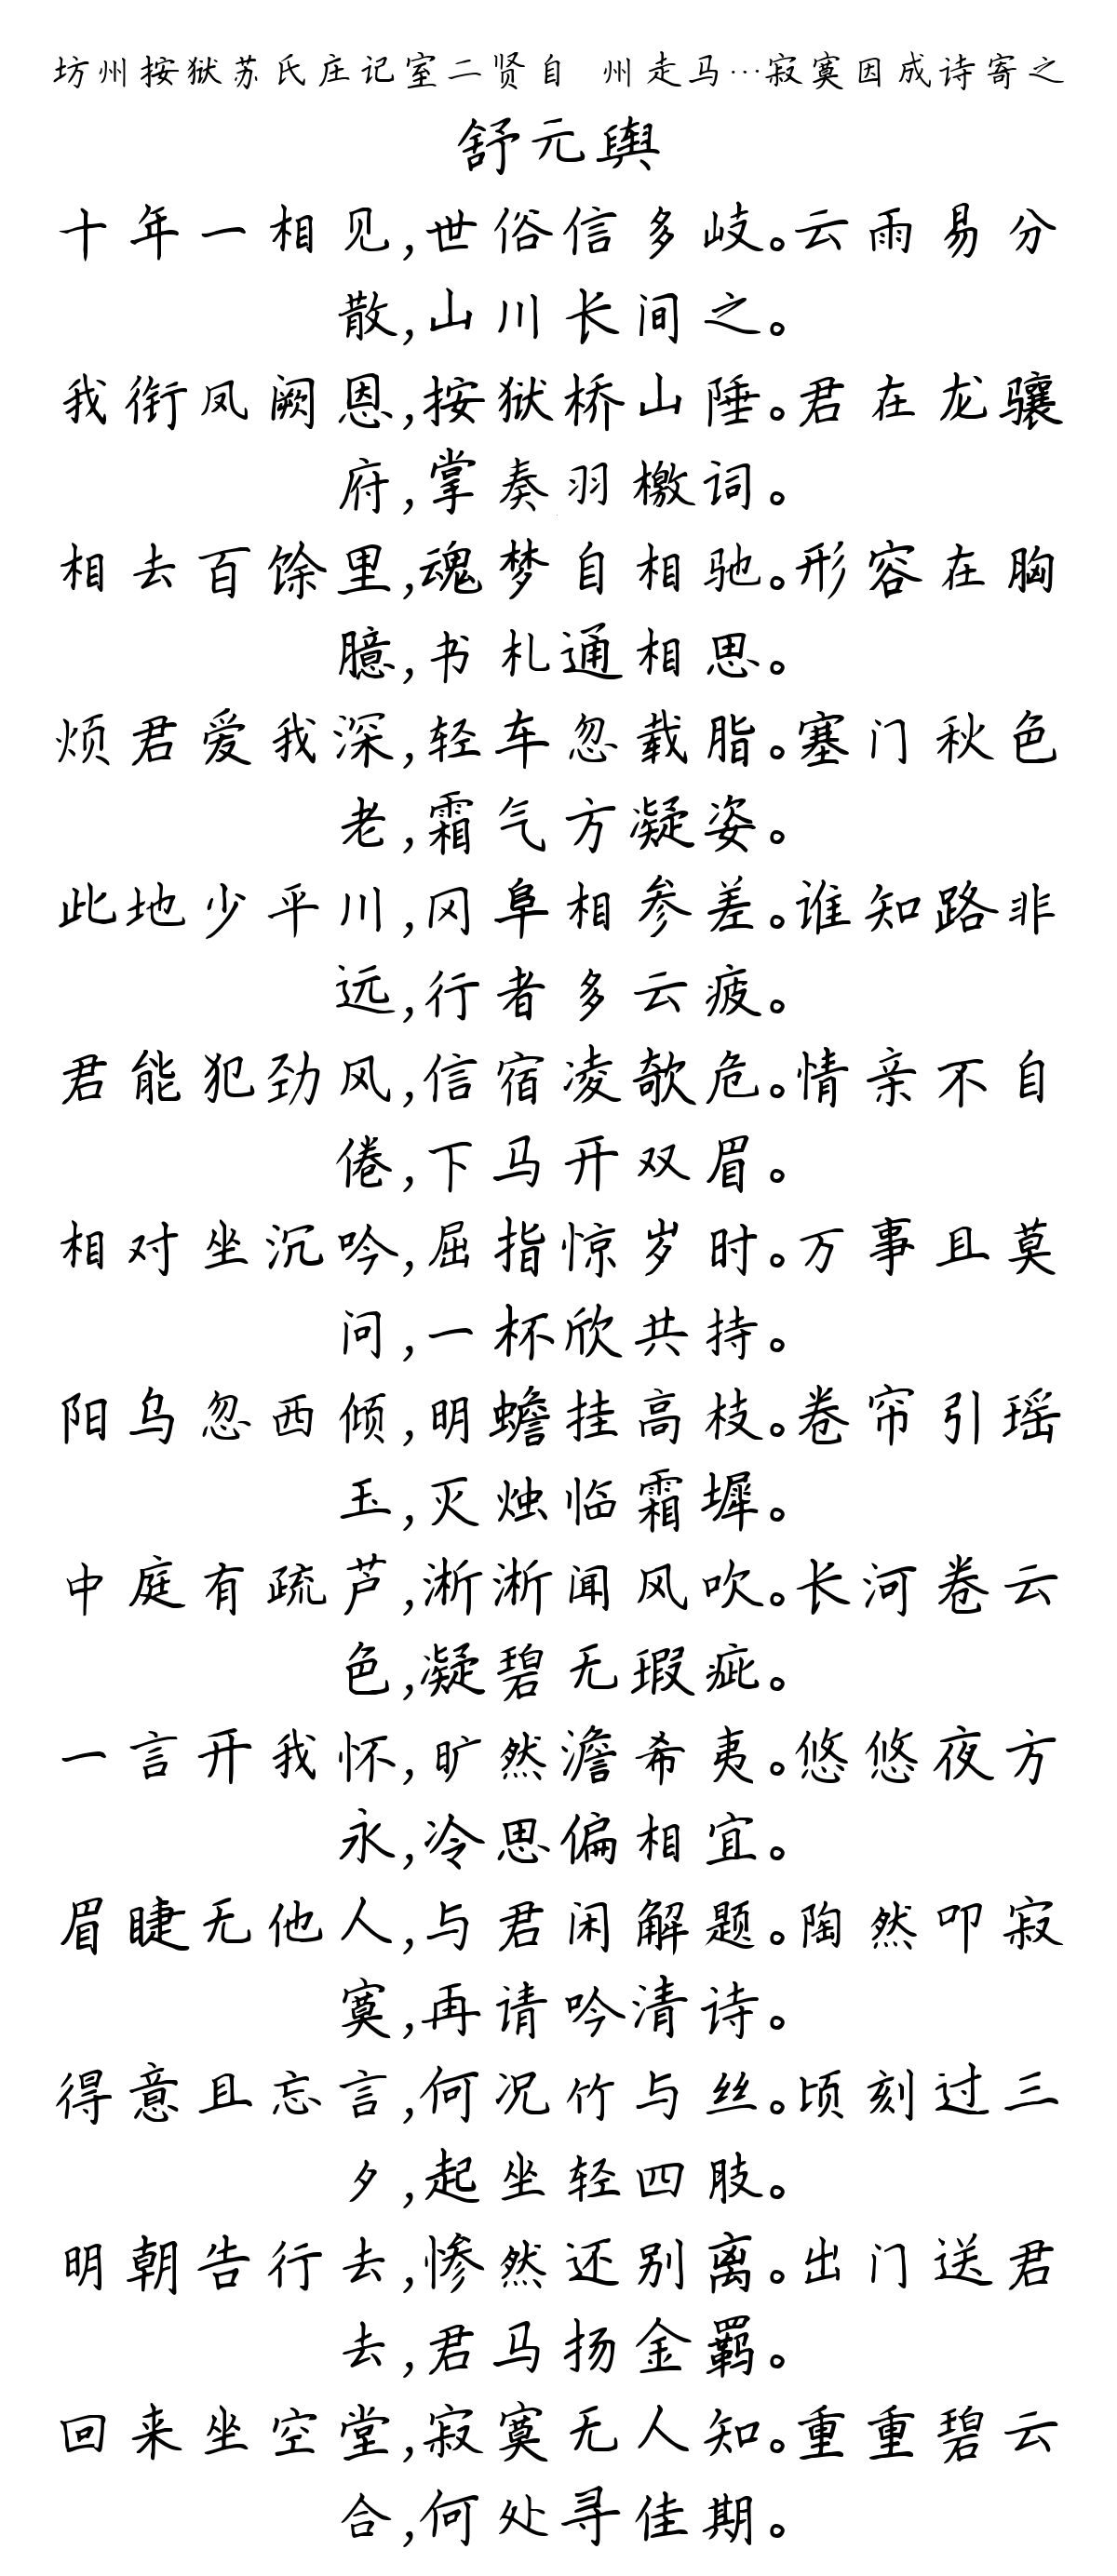 坊州按狱苏氏庄记室二贤自 州走马…寂寞因成诗寄之
舒元舆
十年一相见,世俗信多岐。云雨易分
散,山川长间之。
我衔凤阙恩,按狱桥山陲。君在龙骧
府,掌奏羽檄词。
相去百馀里,魂梦自相驰。形容在胸
臆,书札通相思。
烦君爱我深,轻车忽载脂。塞门秋色
老,霜气方凝姿。
此地少平川,冈阜相参差。谁知路非
远,行者多云疲。
君能犯劲风,信宿凌欹危。情亲不自
倦,下马开双眉。
相对坐沉吟,屈指惊岁时。万事且莫
问,一杯欣共持。
阳乌忽西倾,明蟾挂高枝。卷帘引瑶
玉,灭烛临霜墀。
中庭有疏芦,淅淅闻风吹。长河卷云
色,凝碧无瑕疵。
一言开我怀,旷然澹希夷。悠悠夜方
永,冷思偏相宜。
眉睫无他人,与君闲解题。陶然叩寂
寞,再请吟清诗。
得意且忘言,何况竹与丝。顷刻过三
夕,起坐轻四肢。
明朝告行去,惨然还别离。出门送君
去,君马扬金羁。
回来坐空堂,寂寞无人知。重重碧云
合,何处寻佳期。